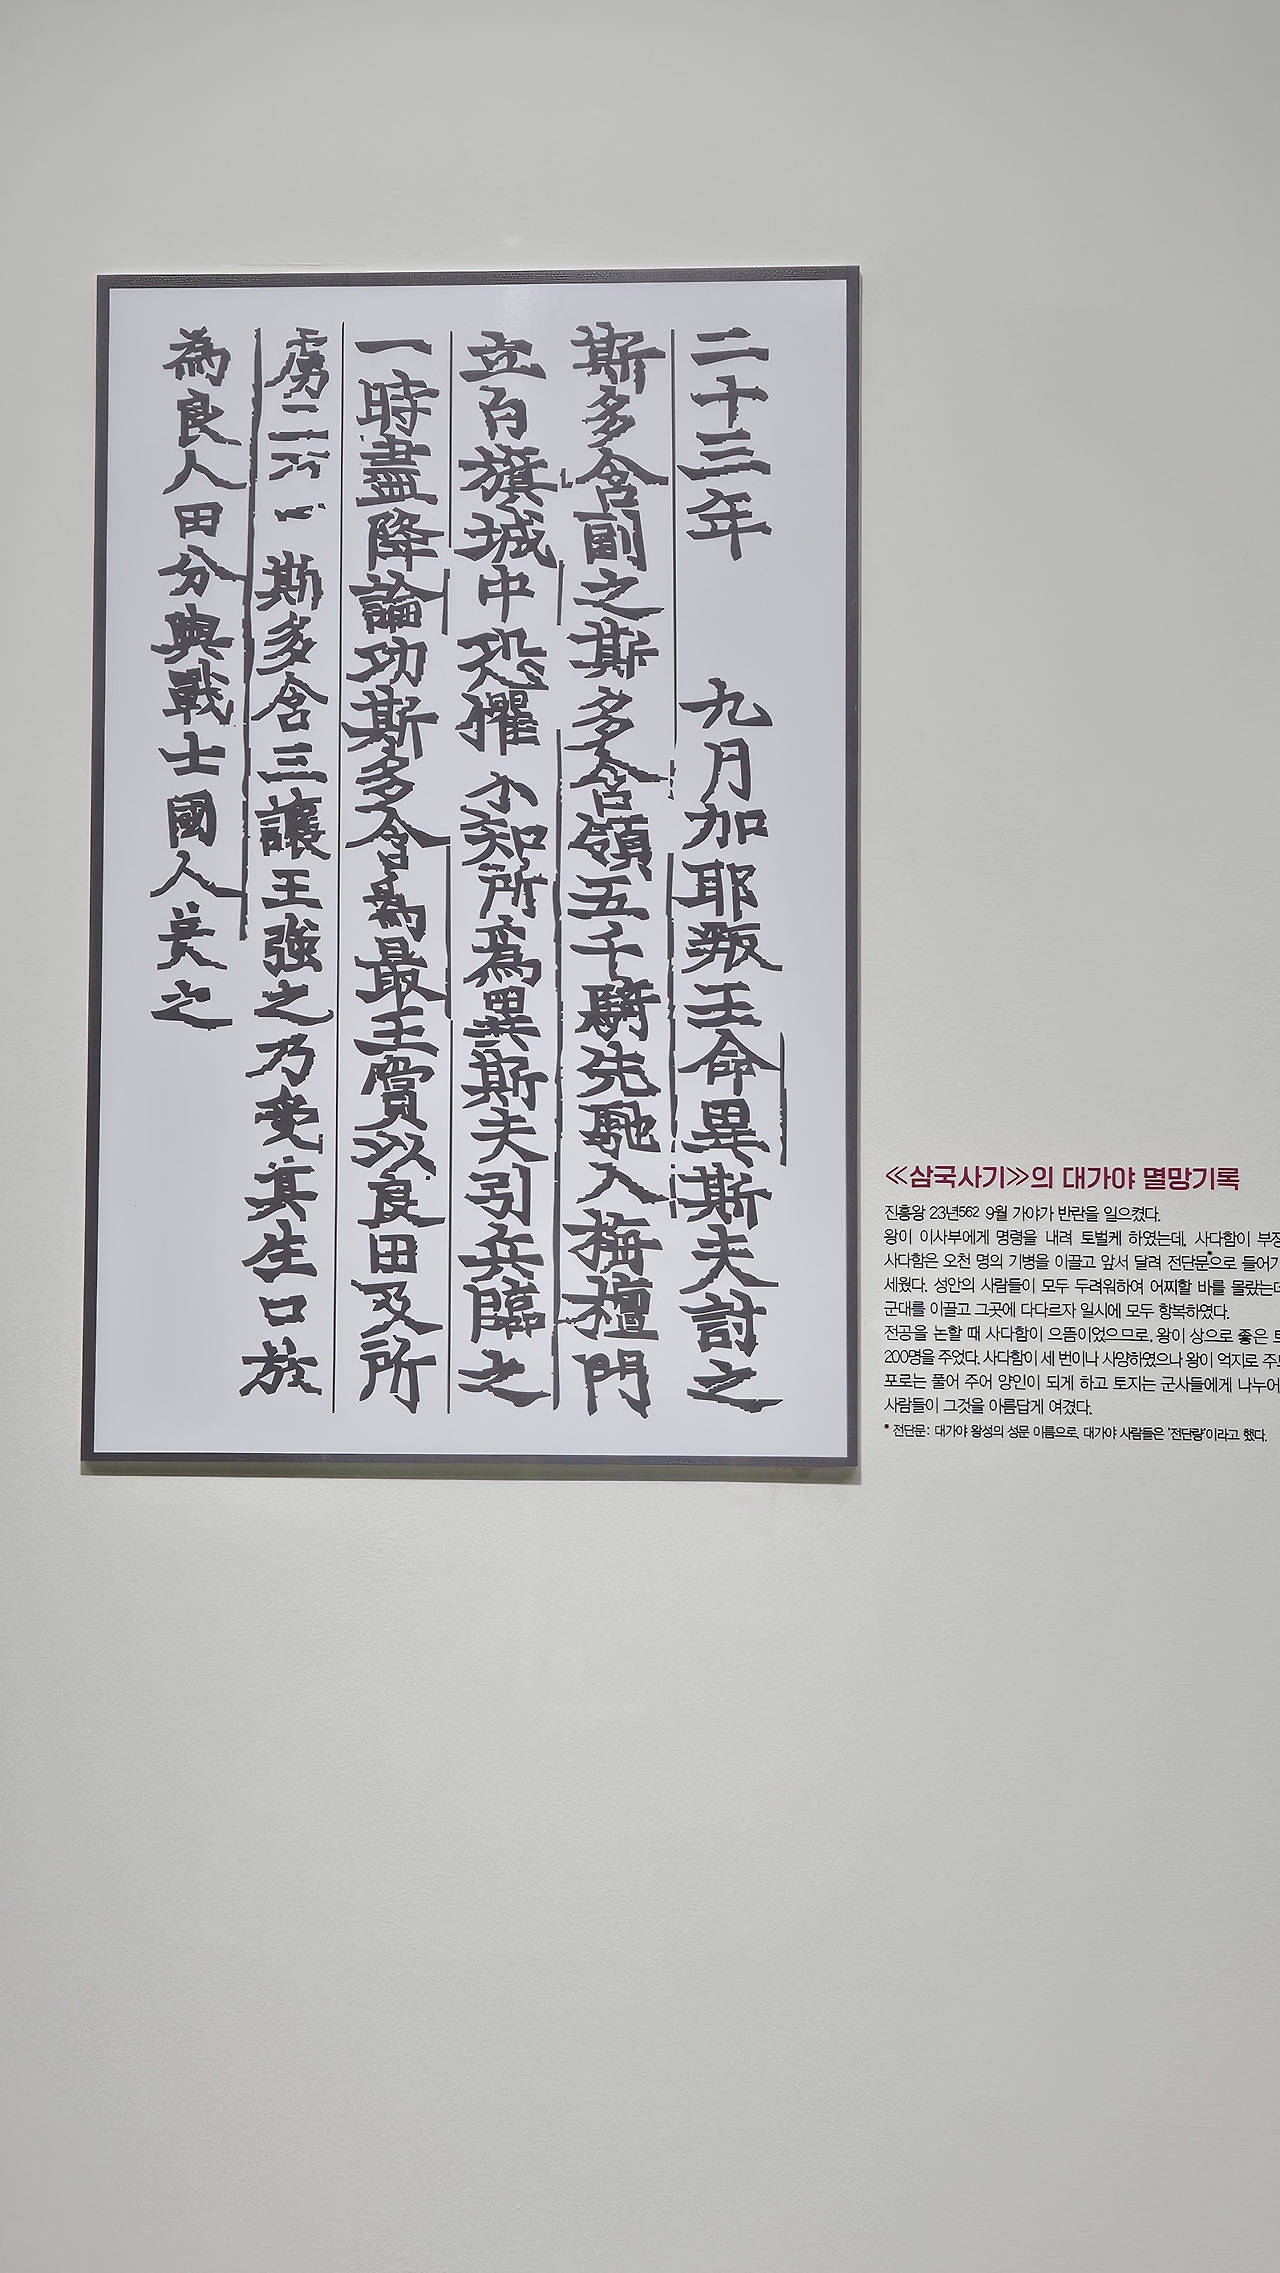 二十三年 九月加耶叛王命異斯夫討之
斯多含副之斯多含領五千騎先馳入栴檀門
立白旗城中恐懼不知所爲異斯夫引兵臨之
一時盡降論功斯多含為最王賞以良田及所
虜二 斯多含三讓王強之乃受其生口放
為良人田分與戰士國人美之
≪삼국사기≫의 대가야 멸망기록
진흥왕 23년562 9월 가야가 반란을 일으켰다.
왕이 이사부에게 명령을 내려 토벌케 하였는데, 사다함이 부장
사다함은 오천 명의 기병을 이끌고 앞서 달려 전단문*으로 들어가
세웠다. 성안의 사람들이 모두 두려워하여 어찌할 바를 몰랐는데
군대를 이끌고 그곳에 다다르자 일시에 모두 항복하였다.
전공을 논할 때 사다함이 으뜸이었으므로, 왕이 상으로 좋은
200명을 주었다. 사다함이 세 번이나 사양하였으나 왕이 억지로
포로는 풀어 주어 양인이 되게 하고 토지는 군사들에게 나누어
사람들이 그것을 아름답게 여겼다.
* 전단문 : 대가야 왕성의 성문 이름으로, 대가야 사람들은 '전단량'이라고 했다.